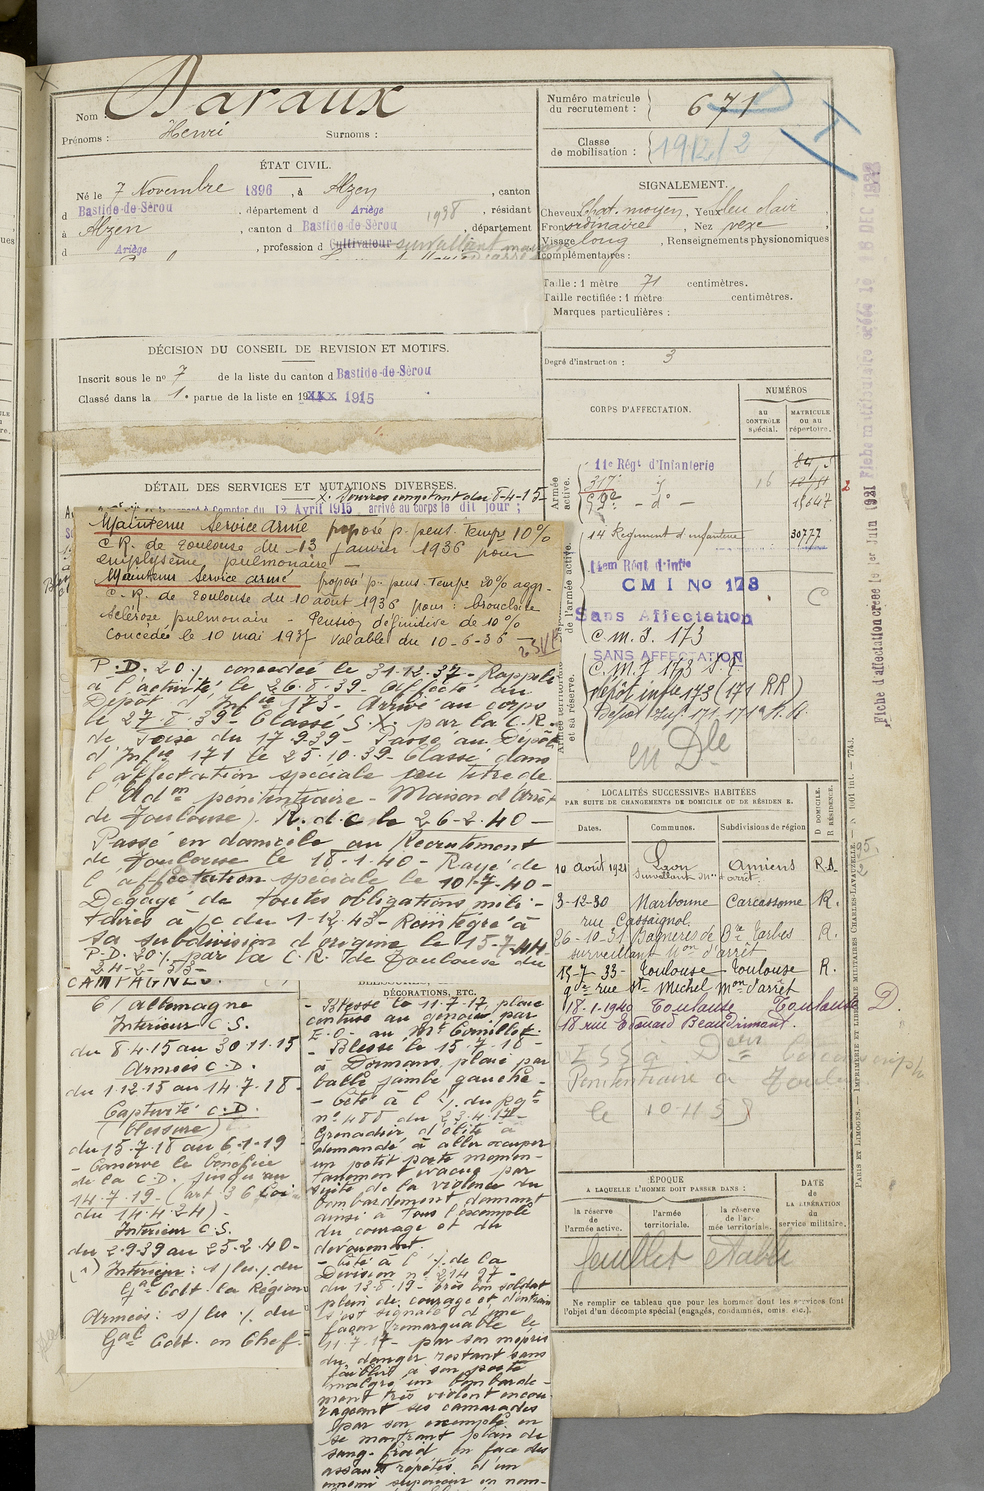 Nom Daraux
Prénoms : Henri Surnoms :
ÉTAT CIVIL.
Né le 7 Novembre 1896, à Alzen, canton
d Bastide-de-Sérou, département d Ariège, résidant
à Alzen, canton d Bastide-de-Sérou, département
d Ariège, profession d Cultivateur surveillant
DÉCISION DU CONSEIL DE REVISION ET MOTIFS.
Inscrit sous le no 7 de la liste du canton d Bastide-de-Sérou
Classé dans la 1e partie de la liste en 19 1915
DÉTAIL DES SERVICES ET MUTATIONS DIVERSES.
comptant du 8-4-15
à compter du 12 Avril 1915 arrivé au corps le dit jour ;
Maintenu Service armé proposé p. pens. Temp 10%
C.R. de Toulouse du 13 Janvier 1936 pour
emphysème pulmonaire —
Maintenu Service armé proposé p. pens. Temp. 20% agg.
C.R. de Toulouse du 10 août 1936 pour : bronchite
sclérose pulmonaire - Pension définitive de 10%
Concédée le 10 mai 1937 valable du 10-6-36
P.D. 20% concédée le 31.12.37 - Rappelé
à l'activité le 26.8.39 - Affecté au
Dépôt d'Infie 173 - Arrivé au corps
le 27.8.39 - Classé S.X. par la C.R.
de du 17-9-39 - Passé au Dépôt
d'Infie 171 le 25.10.39 - Classé dans
l'affectation spéciale au titre de
l'Adon pénitentiaire - Maison d'Arrêt
de Toulouse). R.d.c le 26-2-40 —
Passé en domicile au Recrutement
de Toulouse le 18-1-40 - Rayé de
l'affectation spéciale le 10-7-40 -
Dégagé de toutes obligations mili-
taires à /c du 1-12-43 - Réintégré à
sa subdivision d'origine le 15-7-44
P.D. 20% par la C.R. de Toulouse du
24-2-53
CAMPAGNES.
C/ Allemagne
Intérieur C.S.
du 8-4-15 au 30-11-15
Armées C.D.
du 1-12-15 au 14-7-18 -
Captivité C.D.
(blessure)
du 15-7-18 au 6-1-19
- Conserve le bénéfice
de la C.D. jusqu'au
14-7-19 - (art. 36 Loi
du 14-4-24) -
Intérieur C.S.
du 2-9-39 au 25-2-40 -
(1) Intérieur : s/ du
Gal Cdt. la Région
Armées : s/ du
Gal Cdt. en Chef -
DÉCORATIONS, ETC.
- Blessé le 11-7-17, plaie
contuse au genou par
E.O. au Mt Cornillet.
- Blessé le 15-7-18 -
à Dormans, plaie par
balle jambe gauche -
- Cité à l'O. du Rgt
no 488 du 23-4-17
Grenadier d'élite a
demandé à aller occuper
un petit poste momen-
tanément évacué par
suite de la violence du
bombardement donnant
ainsi à tous l'exemple
du courage et du
dévouement
- Cité à l'O. de la
Division no 21497 -
du 13-8-19 - très bon soldat
plein de courage et d'entrain
s'est signalé d'une
façon remarquable le
11-7-17 - par son mépris
du danger restant sans
faiblir à son poste
malgré un bombarde-
ment très violent encou-
rageant ses camarades
par son exemple en
se montrant plein de
sang-froid en face des
assauts répétés d'un
ennemi supérieur en nom-
Numéro matricule
du recrutement : 671
Classe
de mobilisation : 1912/2
SIGNALEMENT.
Cheveux Chat. moyen, Yeux bleu clair
Front ordinaire, Nez vexe,
Visage long, Renseignements physionomiques
complémentaires :
Taille : 1 mètre 71 centimètres.
Taille rectifiée : 1 mètre centimètres.
Marques particulières :
Degré d'instruction : 3
CORPS D'AFFECTATION.
NUMÉROS
AU CONTRÔLE spécial.
MATRICULE OU AU répertoire.
Armée active.
11e Régt d'Infanterie
317e
59e - do -
16
18647
14 Régiment d'infanterie 30777
14em Régt d'Infie
CMI No 173
Sans Affectation
C
C.M.I. 173
SANS AFFECTATION
C.M.I 173 S.A.
Dépôt infie 173 (171 RR)
Dépôt Inf. 171
en Dle
LOCALITÉS SUCCESSIVES HABITÉES
PAR SUITE DE CHANGEMENTS DE DOMICILE OU DE RÉSIDENCE.
Dates. Communes. Subdivisions de région
D DOMICILE. R RÉSIDENCE.
10 août 1921 Laon Amiens R.
surveillant Mon d'arrêt.
3-12-30 Narbonne Carcassonne R.
rue Cassaignol
26-10-31 Bagnères de Bre Tarbes R.
surveillant Mon d'arrêt
15-7-33 - Toulouse - Toulouse R.
Gde rue St Michel Mon d'arrêt
18-1-1940 Toulouse Toulouse D.
18 rue Edouard Beaudrimont.
Pénitentiaire à Toulouse
le 10-4-58
ÉPOQUE
A LAQUELLE L'HOMME DOIT PASSER DANS :
la réserve de l'armée active.
l'armée territoriale.
la réserve de l'armée territoriale.
DATE de LA LIBÉRATION du service militaire.
feuillet établi
Ne remplir ce tableau que pour les hommes dont les services font
l'objet d'un décompte spécial (engagés, condamnés, omis, etc.).
PARIS ET LIMOGES. — IMPRIMERIE ET LIBRAIRIE MILITAIRES CHARLES-LAVAUZELLE.
Fiche d'affectation créée le 1er Juin 1921
Fiche matriculaire créée le 18 DEC